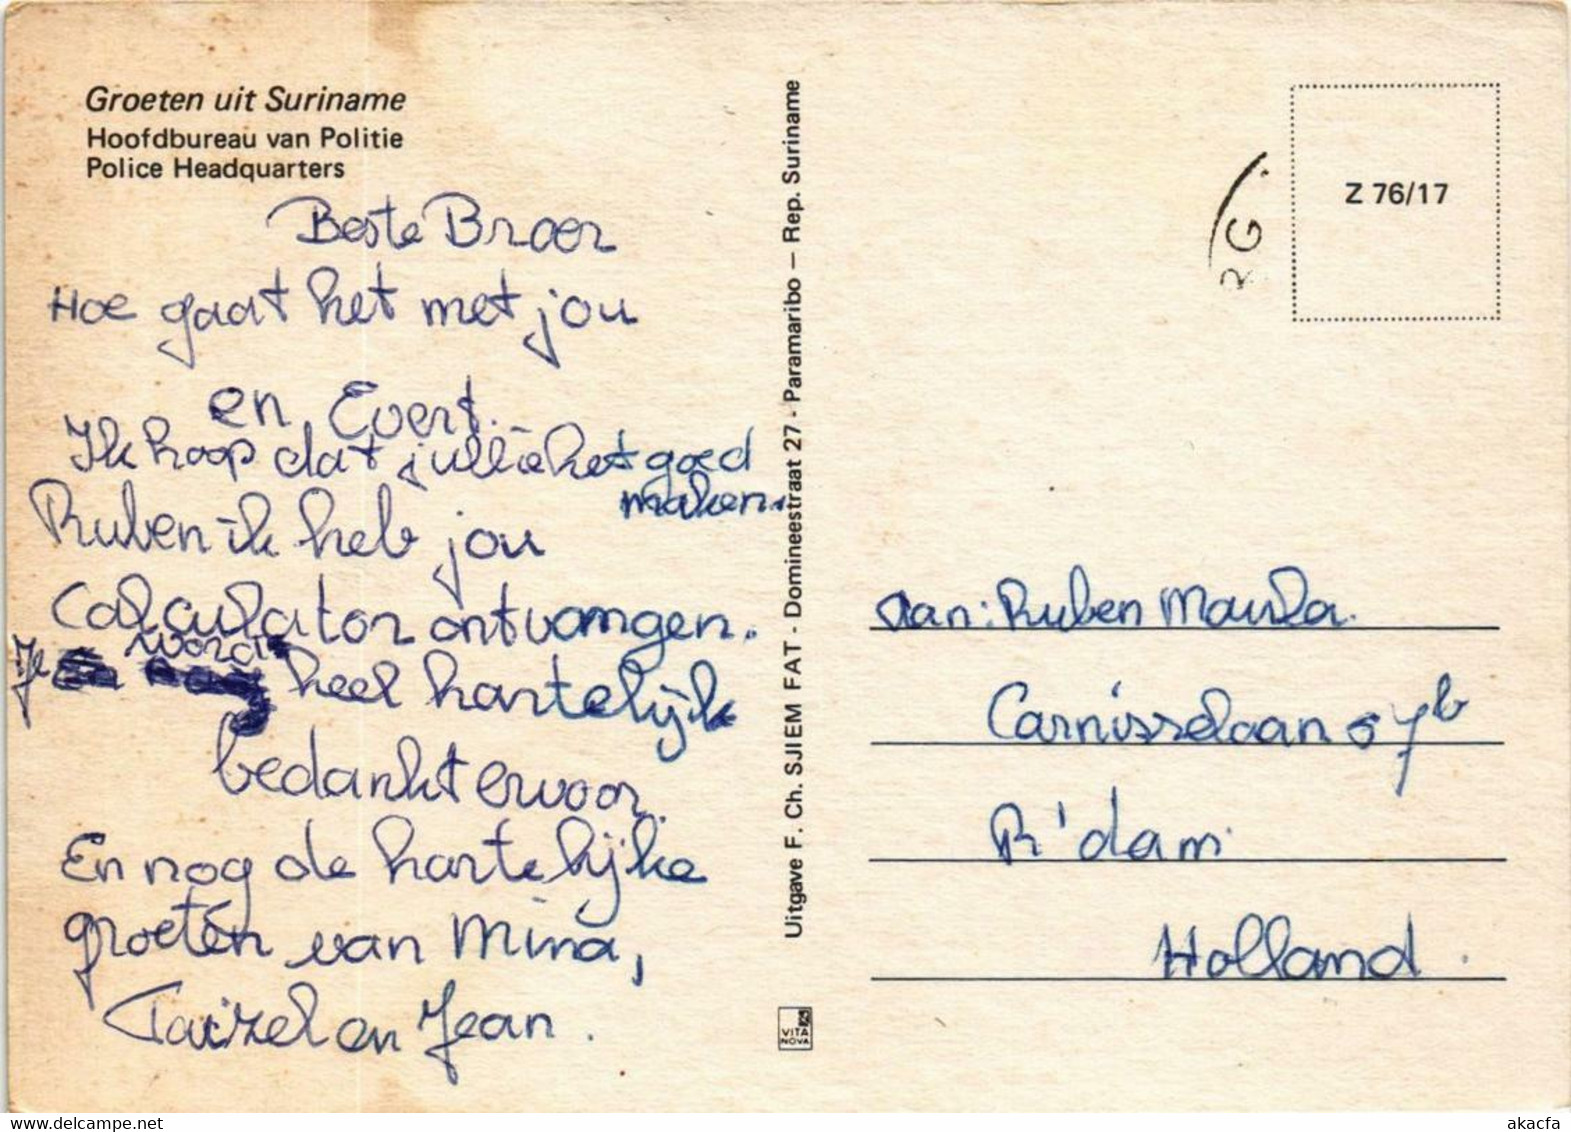 Groeten uit Suriname
Hoofdbureau van Politie
Police Headquarters
Beste Broer
Hoe gaat het met jou
en Evert.
Ik hoop dat jullie het goed
maken.
Ruben ik heb jou
Calculator ontvangen.
Je word heel hartelijk
bedankt ervoor.
En nog de hartelijke
groeten van Mina,
en Jean.
Uitgave F. Ch. SJIEM FAT - Domineestraat 27 - Paramaribo — Rep. Suriname
VITA
NOVA
RG.
Z 76/17
Aan: Ruben
Carnisselaan 67b
R'dam
Holland.
www.delcampe.net
akacfa